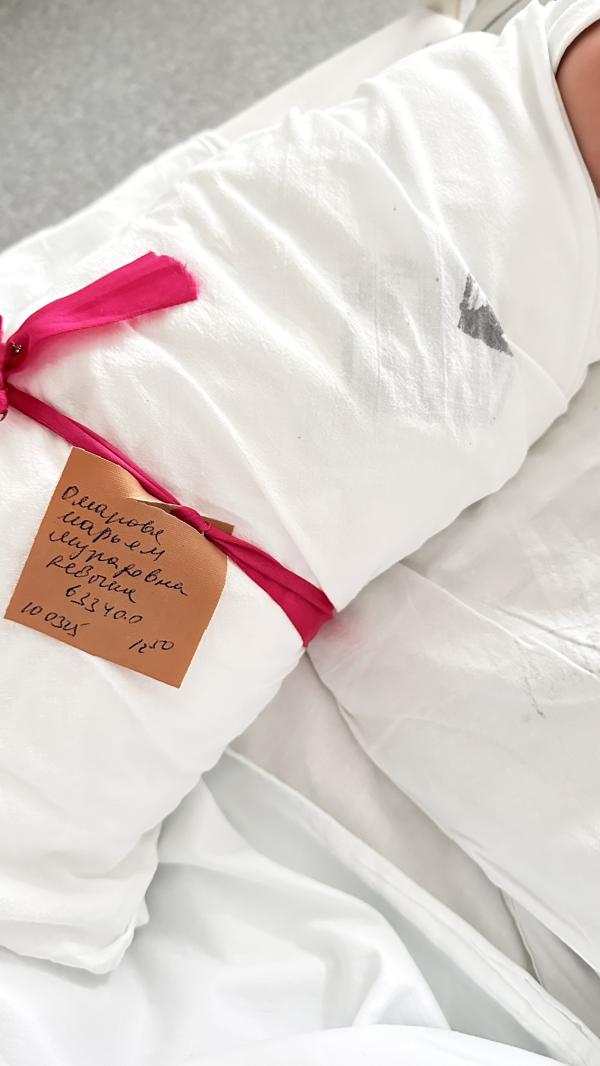 Омарова
марьям
мурадовна
девочка
633400
100325 12⁵⁰